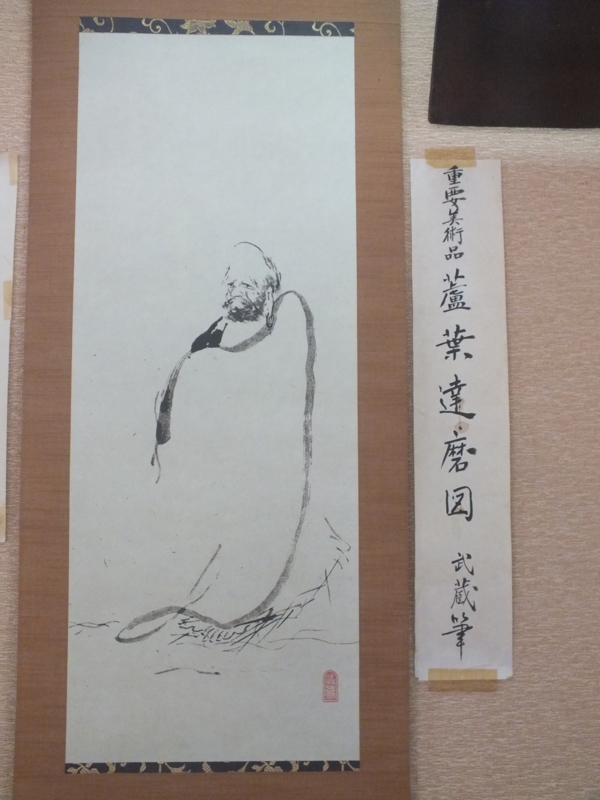 重要美術品 蘆葉達磨図 武蔵筆